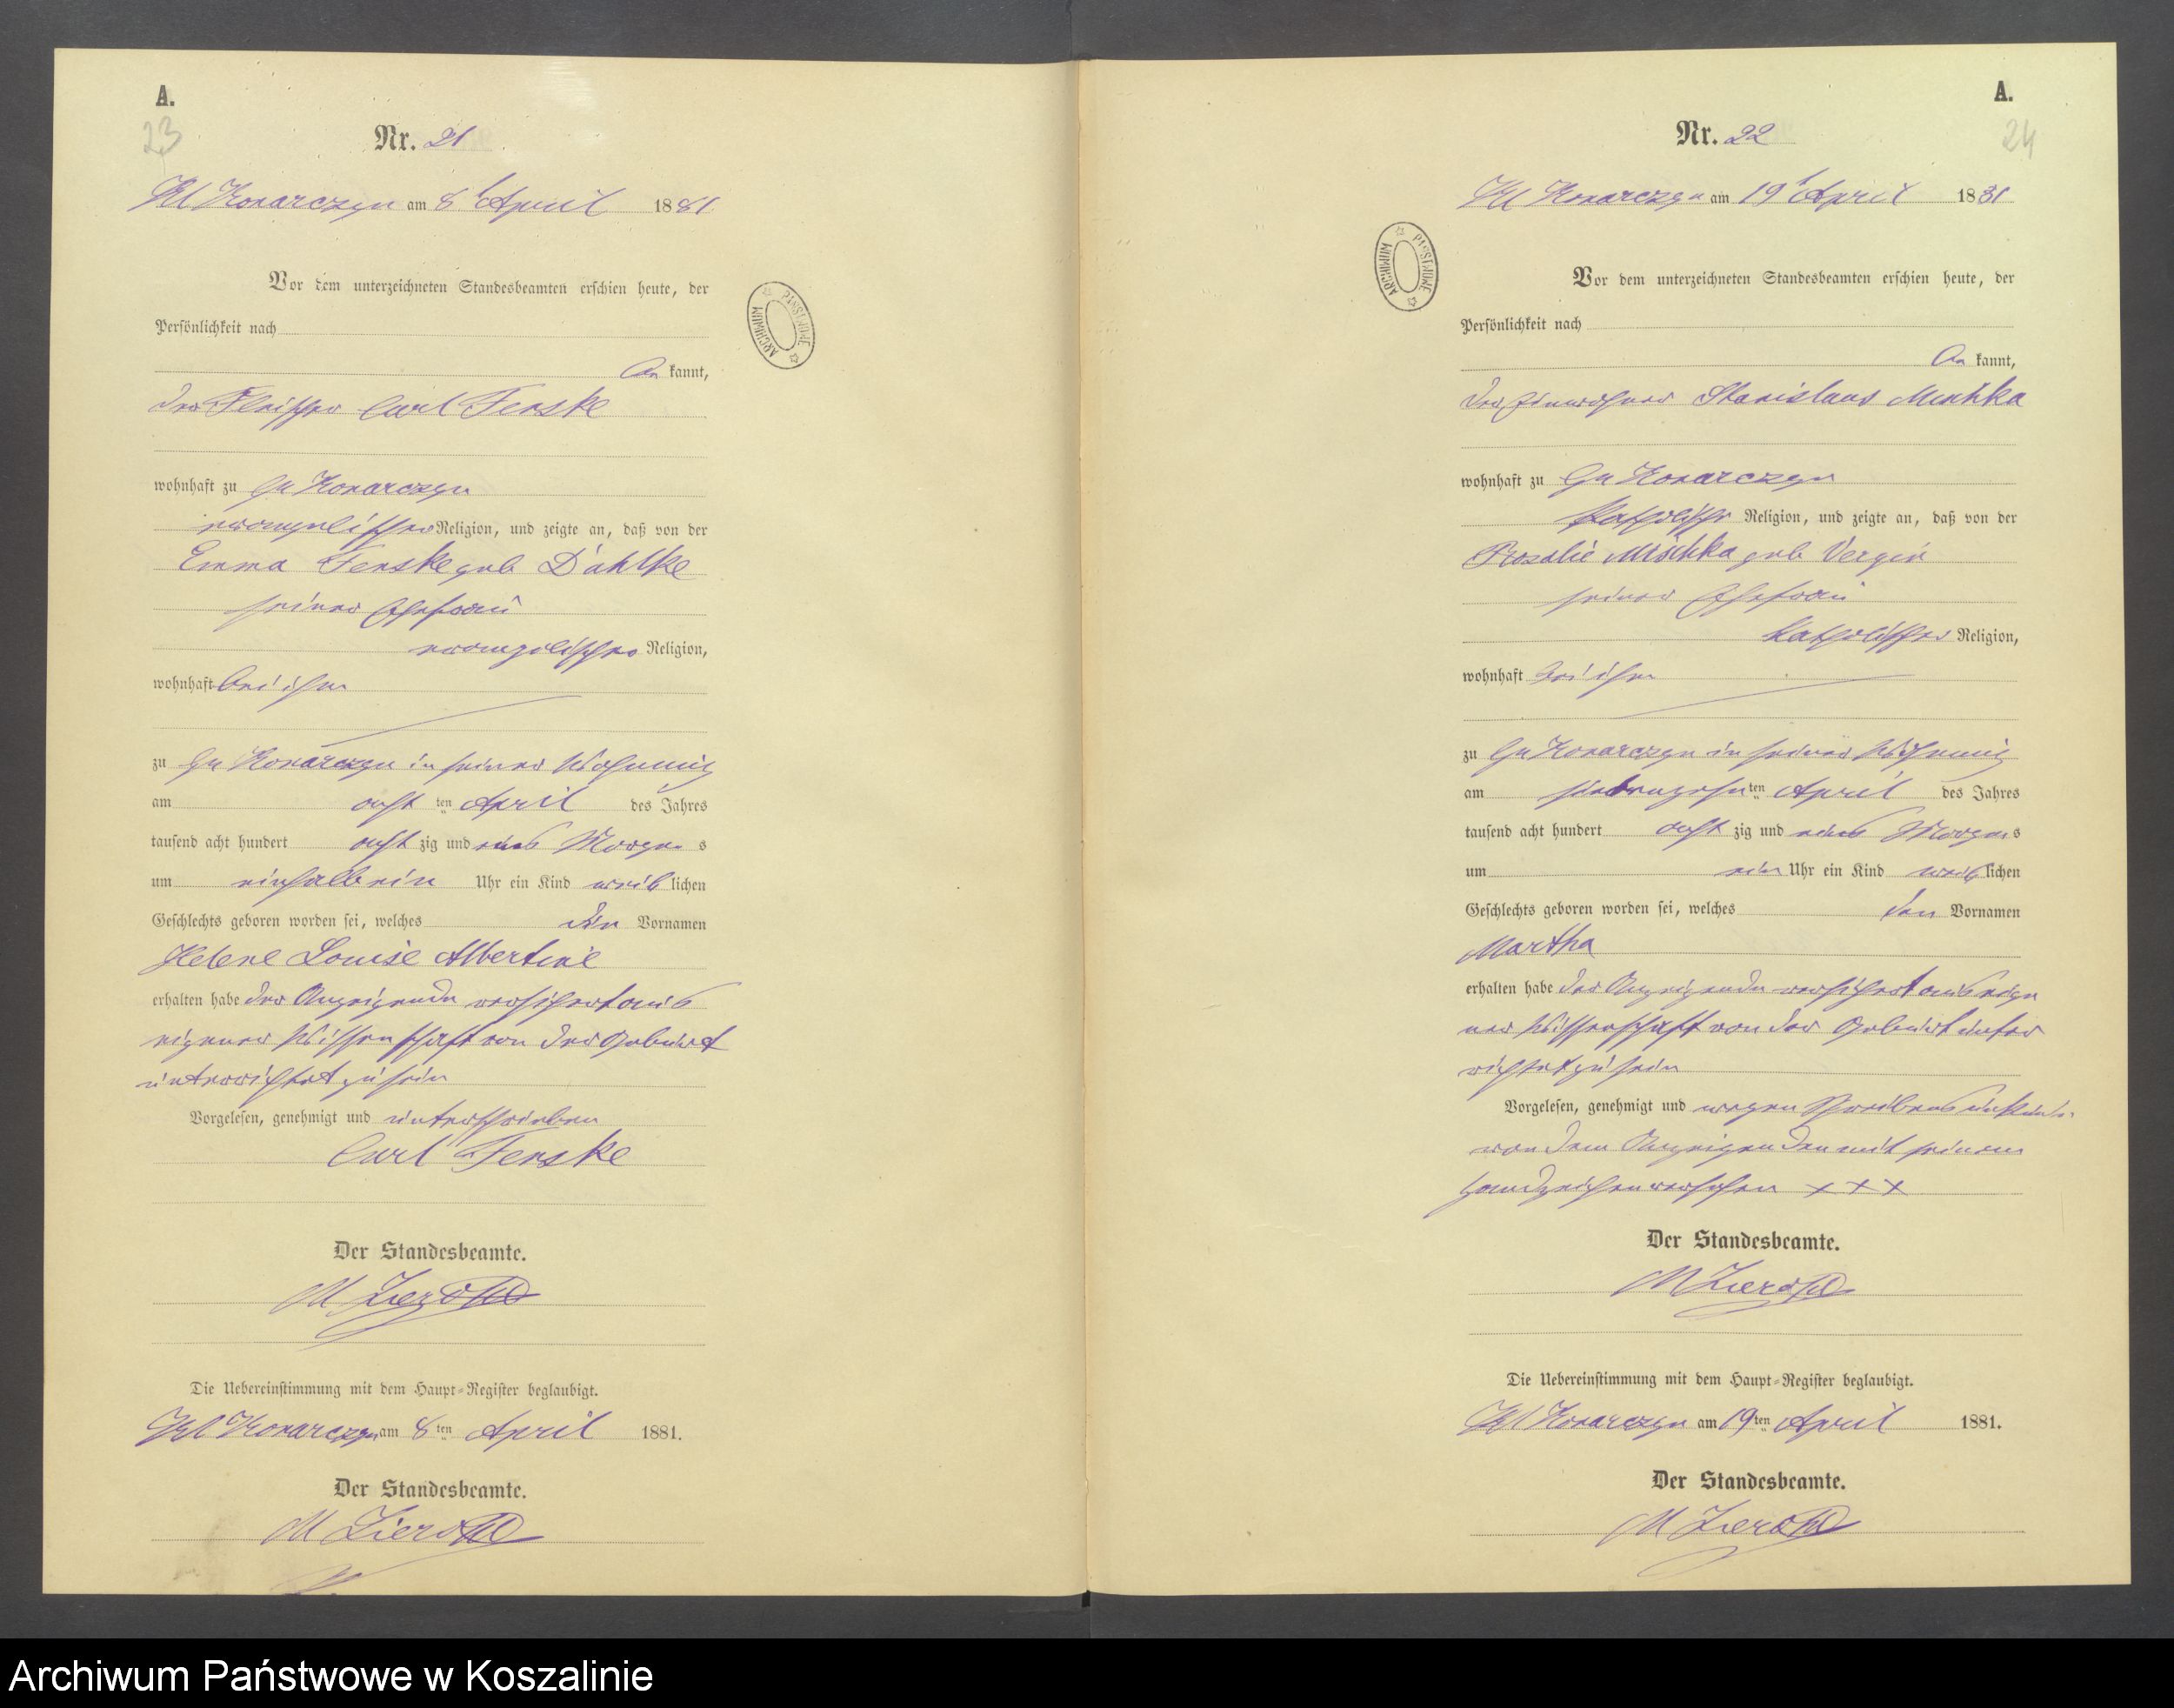 A.
23
Nr. 21
Kl Konarczyn am 8t April 1881
Vor dem unterzeichneten Standesbeamten erschien heute, der
Persönlichkeit nach
be kannt,
der Fleischer Carl Fenske
wohnhaft zu Gr Konarczyn
evangelischer Religion, und zeigte an, daß von der
Emma Fenske geb Dahlke
seiner Ehefrau
evangelischer Religion,
wohnhaft bei ihm
zu Gr Konarczyn in seiner Wohnung
am acht ten April des Jahres
tausend acht hundert acht zig und eins Morgen s
um einhalb ein Uhr ein Kind weib lichen
Geschlechts geboren worden sei, welches die Vornamen
Helene Louise Albertine
erhalten habe der Anzeigende versichert aus
eigener Wissenschaft von der Geburt
unterrichtet zu sein
Vorgelesen, genehmigt und unterschrieben
Carl Fenske
Der Standesbeamte.
Die Uebereinstimmung mit dem Haupt-Register beglaubigt.
Kl Konarczyn am 8ten April 1881.
Der Standesbeamte.
ARCHIWUM PAŃSTWOWE
A.
24
Nr. 22
Kl Konarczyn am 19t April 1881
Vor dem unterzeichneten Standesbeamten erschien heute, der
Persönlichkeit nach
be kannt,
der Einwohner Stanislaus
wohnhaft zu Gr Konarczyn
katholischer Religion, und zeigte an, daß von der
Rosalie Mischka geb Vergin
seiner Ehefrau
katholischer Religion,
wohnhaft bei ihm
zu Gr Konarczyn in seiner Wohnung
am siebenzehn ten April des Jahres
tausend acht hundert acht zig und eins Morgen s
um ein Uhr ein Kind weib lichen
Geschlechts geboren worden sei, welches den Vornamen
Martha
erhalten habe der Anzeigende versichert aus eige
ner Wissenschaft von der Geburt unter
richtet zu sein
Vorgelesen, genehmigt und wegen Schreibens
von dem Anzeigenden mit seinem
Handzeichen versehen + + +
Der Standesbeamte.
Die Uebereinstimmung mit dem Haupt-Register beglaubigt.
Kl Konarczyn am 19ten April 1881.
Der Standesbeamte.
ARCHIWUM PAŃSTWOWE
Archiwum Państwowe w Koszalinie